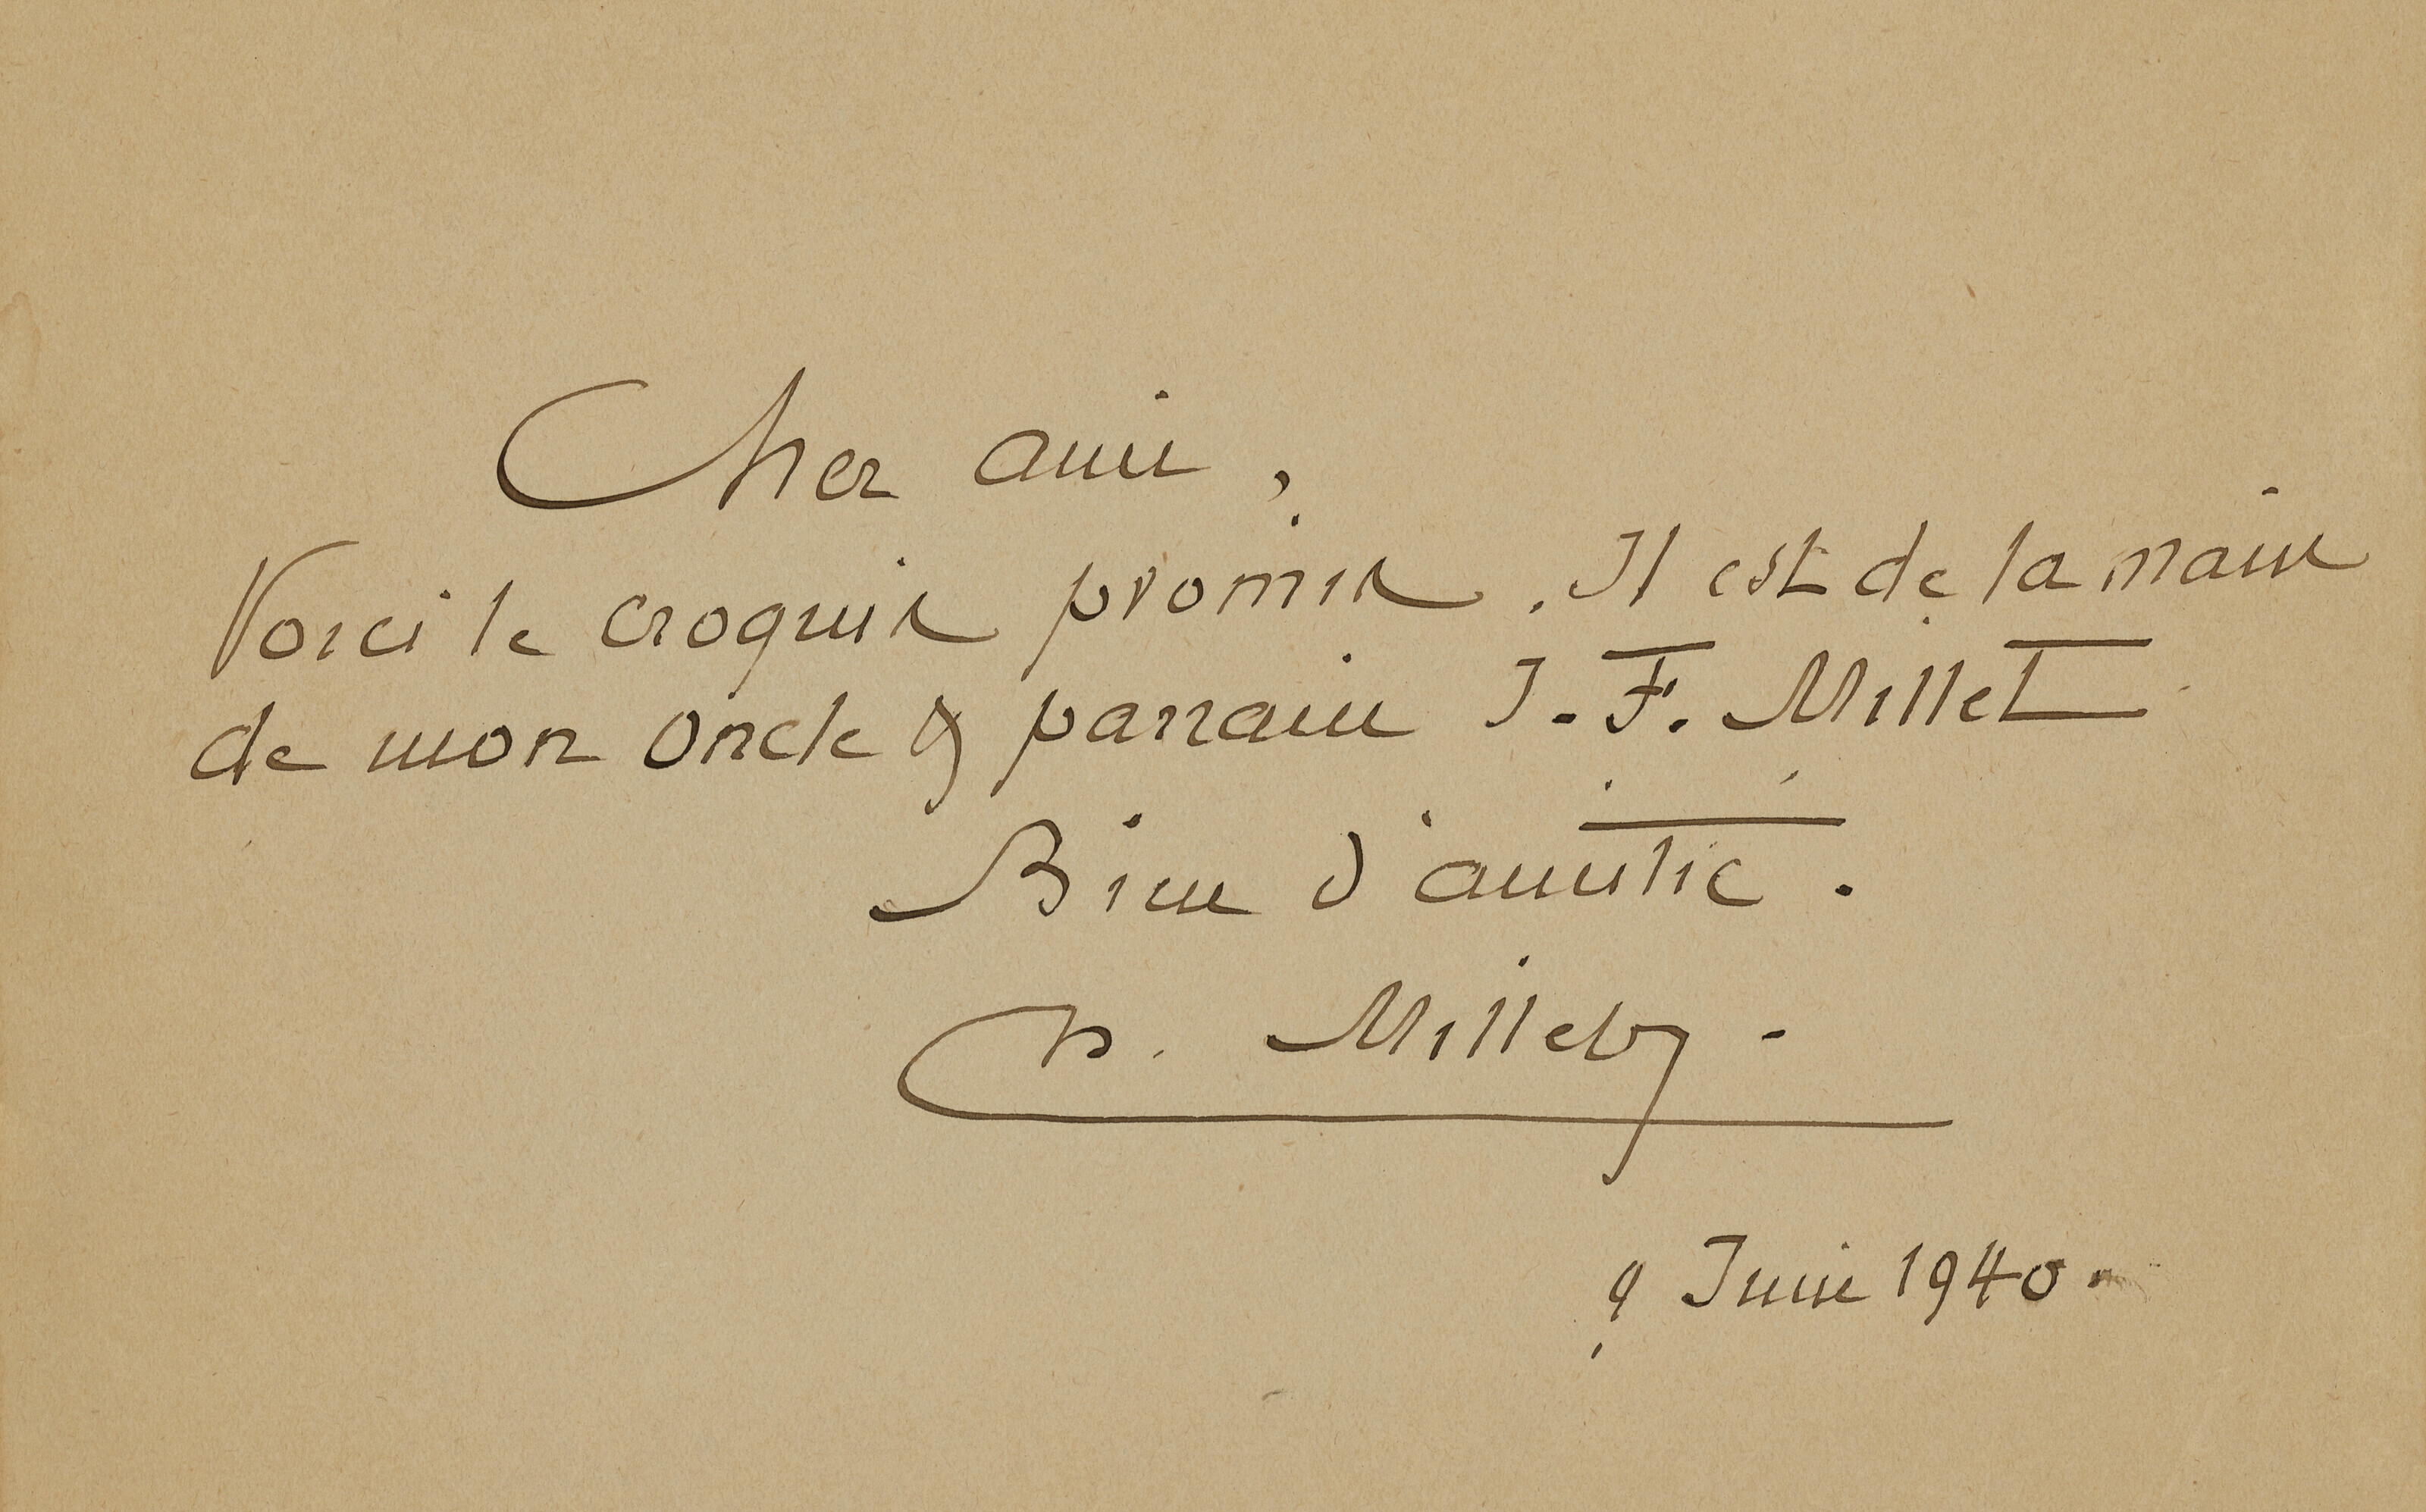 Cher ami,
Voici le croquis promis. Il est de la main
de mon oncle & parrain J. F. Millet
Bien d'amitié.
Millet
9 Juin 1940.